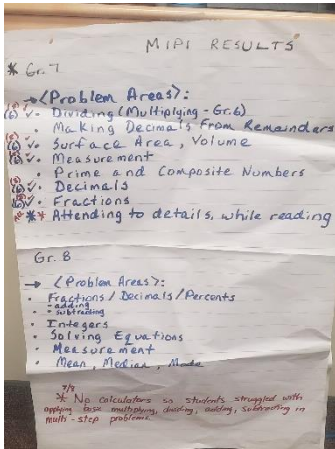 MIPI RESULTS
* Gr. 7
→ <Problem Areas>:
(6) ✓ • Dividing (Multiplying - Gr.6)
• Making Decimals From Remainders
(6) ✓ • Surface Area, Volume
(6) ✓ • Measurement
• Prime and Composite Numbers
(6) ✓ • Decimals
(6) ✓ • Fractions
* * Attending to details, while reading
Gr. 8
→ <Problem Areas>:
• Fractions / Decimals / Percents
- adding
- subtracting
• Integers
• Solving Equations
• Measurement
• Mean, Median, Mode
7/8
* No calculators so students struggled with
applying basic multiplying, dividing, adding, subtracting in
multi-step problems